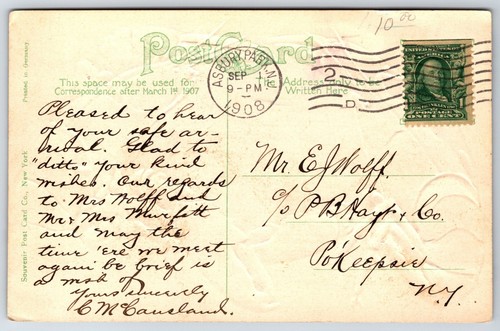 10 00
Post Card
ASBURY PARK, N.J.
SEP 1
9-PM
1908
2
D
UNITED STATES
POSTAGE
ONE CENT
This space may be used for
Correspondence after March 1st 1907
The Address only to be
Written Here
Printed in Germany
Souvenir Post Card Co., New York
Pleased to hear
of your safe ar-
rival. Glad to
"ditto" your kind
wishes. Our regards
to Mrs Wolff and
Mr & Mrs Murfitt
and may the
time 'ere we meet
again be brief is
a wish of
Yours sincerely
C McCausland.
Mr. E J Wolff.
c/o P B Hayt & Co.
Po'Keepsie
N.Y.